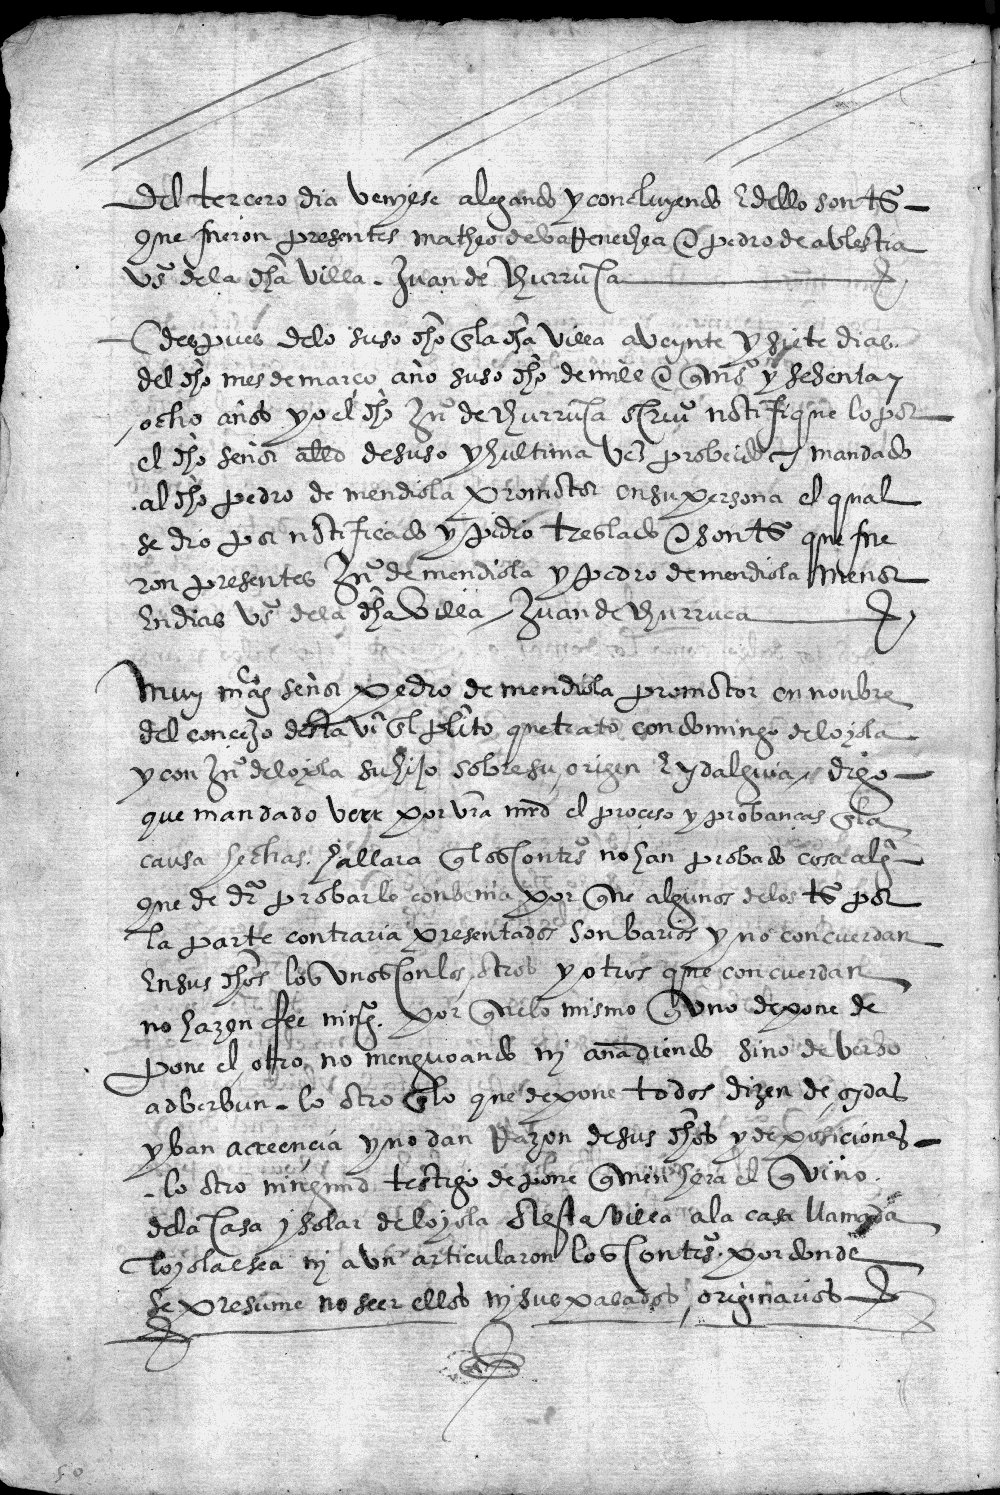 del tercero dia venyese alegando y concluyendo e dello son tsº
que fueron presentes matheo de barrenechea e pedro de aulestia
vsº de la dha villa. Juan de churruca
E despues delo suso dho en la dha villa a veynte y siete dias
del dho mes de março año suso dho de mill e quisº y sesenta y
ocho años yo el dho Juº de churruca scrivº notifique lo por
el dho señor allde de suso y hultima vez probeido y mandado
al dho pedro de mendiola promotor en su persona el qual
se dio por notificado y pidio treslado e son tsº que fue
ron presentes Juº de mendiola y pedro de mendiola menor
en dias vsº de la dha villa Juan de churruca
Muy magco señor pedro de mendiola promotor en nonbre
del concejo desta vª en el plito que trato con domingo de loyola
y con Juº de loyola su hijo sobre su origen e ydalguia digo
que mandado veer por vra md el proceso y probanças en la
causa hechas. hallara que los contrsº no han probado cosa algª
que de drº probarle convenia por que algunos de los tsº por
la parte contraria presentados son barios y no concuerdan
en sus dhos los vnos con los otros y otros que concuerdan
no hazen fee ningª. por que lo mismo que vno depone de
pone el otro no menguoando ny anadiendo sino de verbo
adverbun. lo otro en lo que depone todos dizen de oydas
y ban a creencia y no dan Razon de sus dhos y deposiciones
lo otro ningund testigo depone quien hera el que vino
de la casa y solar de loyola desta villa a la casa llamada
loyola esea ny avn articularon los contrsº por donde
se presume no seer ellos ny sus pasados originarios
50